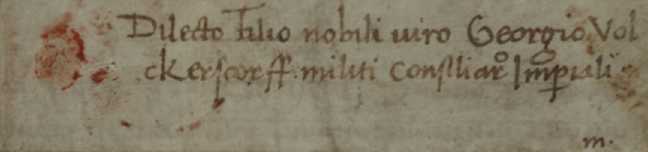 Dilecto filio nobili uiro Georgio Vol
ckerstorff militi Consiliar͛ Imperiali
m.